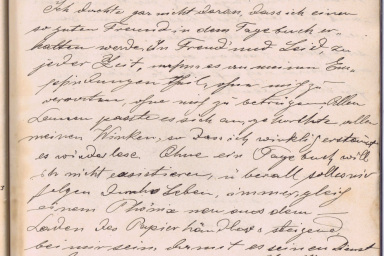 Ich dachte gar nicht daran, dass ich einen
so guten Freund in dem Tagebuch er-
halten werde, in Freud' und Leid, zu
jeder Zeit, nimmt es an meinen Em-
pfindungen Theil, ohne mich zu
verraten, ohne mich zu betrügen. Allen
Launen passte es sich an, gehorchte allen
meinen Winken, so dass ich wirklich erstaunt
es wieder lese. Ohne ein Tagebuch will
ich nicht existieren, überall soll es mir
folgen durchs Leben, immer gleich
einem Phönix neu aus dem
Laden des Papierhändlers steigend
bei mir sein, damit es seinen Dienst